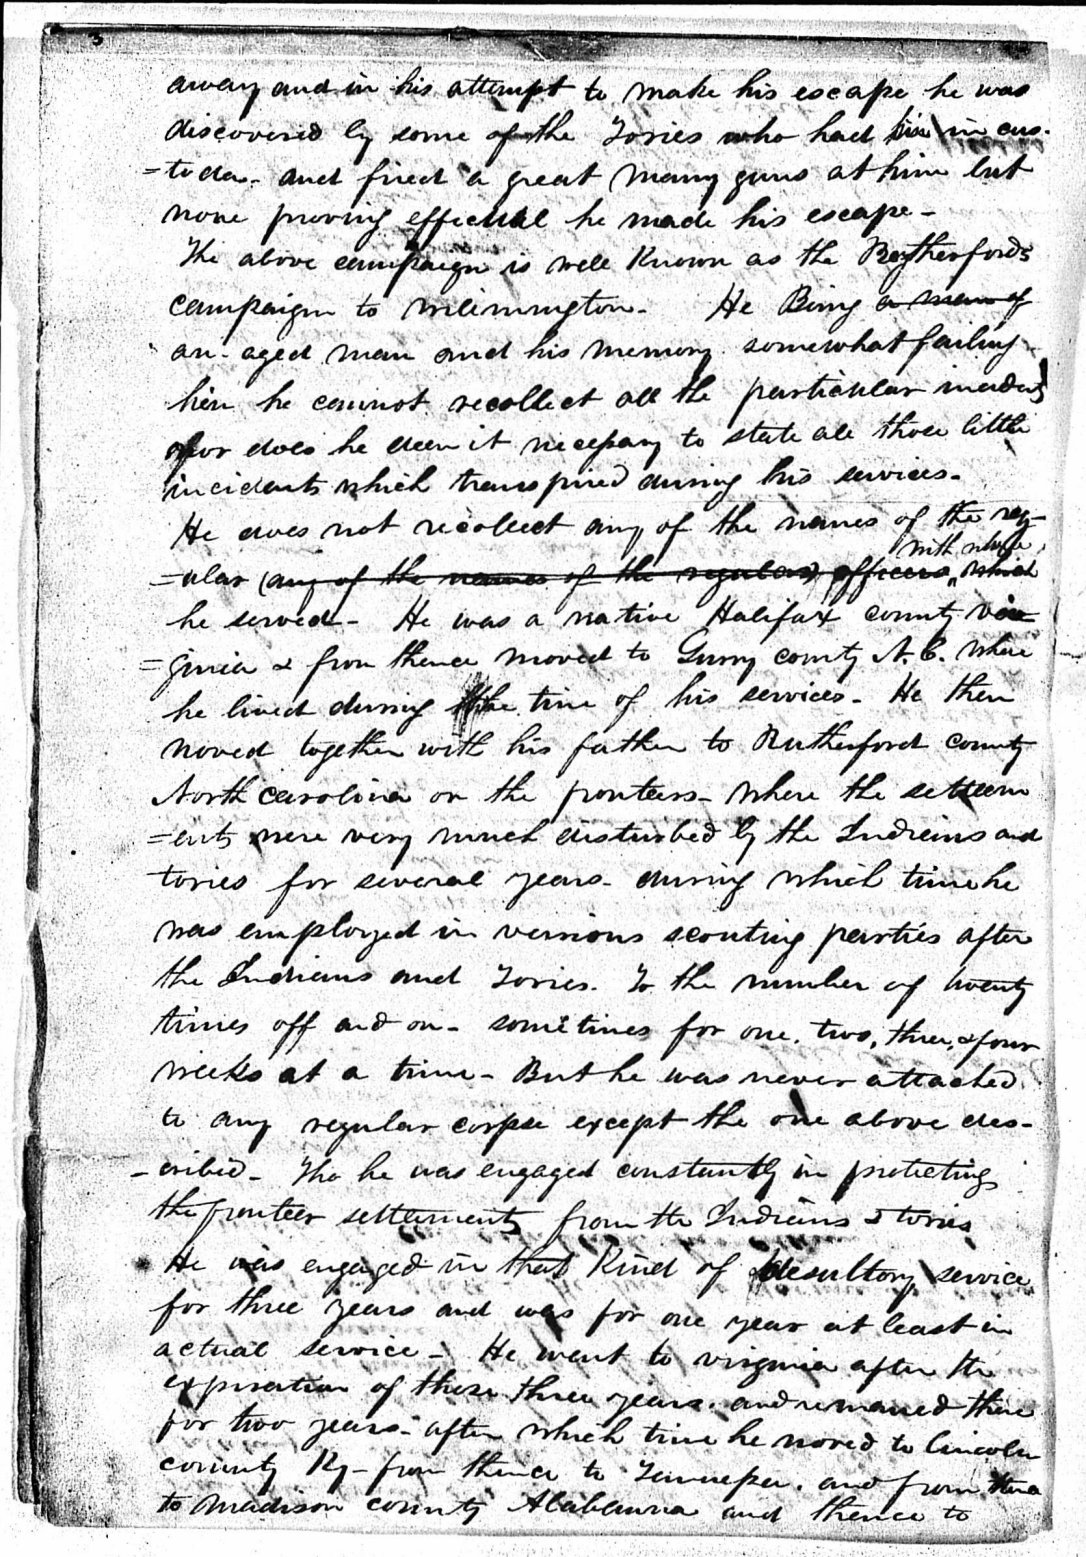 3
away and in his attempt to make his escape he was
discovered by some of the Tories who had him in cus-
=toda- and fired a great many guns at him but
none proving effectual he made his escape-
The above campaign is well Known as the Rutherfords
campaign to wilimington- He Being a man of
an-aged man and his memory somewhat failing
him he cannot recollect all the particular incidents
nor does he deem it necessary to state all those little
incidents which transpired during his services-
He does not recollect any of the names of the reg-
with whom
=ular (any of the names of the regulars) officers which
he served- He was a native Halifax county vir
=ginia & from thence moved to Surry county N.C. where
he lived during the time of his services- He then
moved together with his father to Rutherford county
North carolina on the fronteers- where the settlem
=ents were very much disturbed by the Indians and
tories for several years- during which time he
was employed in various scouting parties after
the Indians and Tories. To the number of twenty
times off and on- sometimes for one, two, three, & four
weeks at a time- But he was never attached
to any regular corpse except the one above des-
-cribed- Tho he was engaged constantly in protecting
the fronteer settlements from the Indians & tories
He was engaged in that Kind of desultory service
for three years and was for one year at least in
actual service- He went to virginia after the
expiration of those three years. and remained there
for two years- after which time he moved to Lincoln
county Ky- from thence to Tennessee. and from thence
to Madison county Alabama and thence to